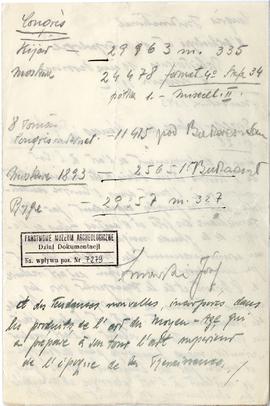 Congrès
Kijów — 29863 m. 335
Moskwa 24478 format 4°
półka 1. - Miscell. II.
8 Tomów
Congrès internat — 11415 pod
Moskwa 1893 — 25651 Budapest
Ryga — 29257 m. 327
PAŃSTWOWE MUZEUM ARCHEOLOGICZNE
Dział Dokumentacji
Ks. wpływu poz. Nr 7279
et des tendances nouvelles, incorporés dans
les produits de l'art du Moyen-Age qui
a préparé à son tour l'art supérieur
de l'époque de la Renaissance.